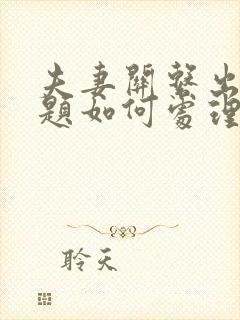 夫妻關繫出
題如何處理
聆天